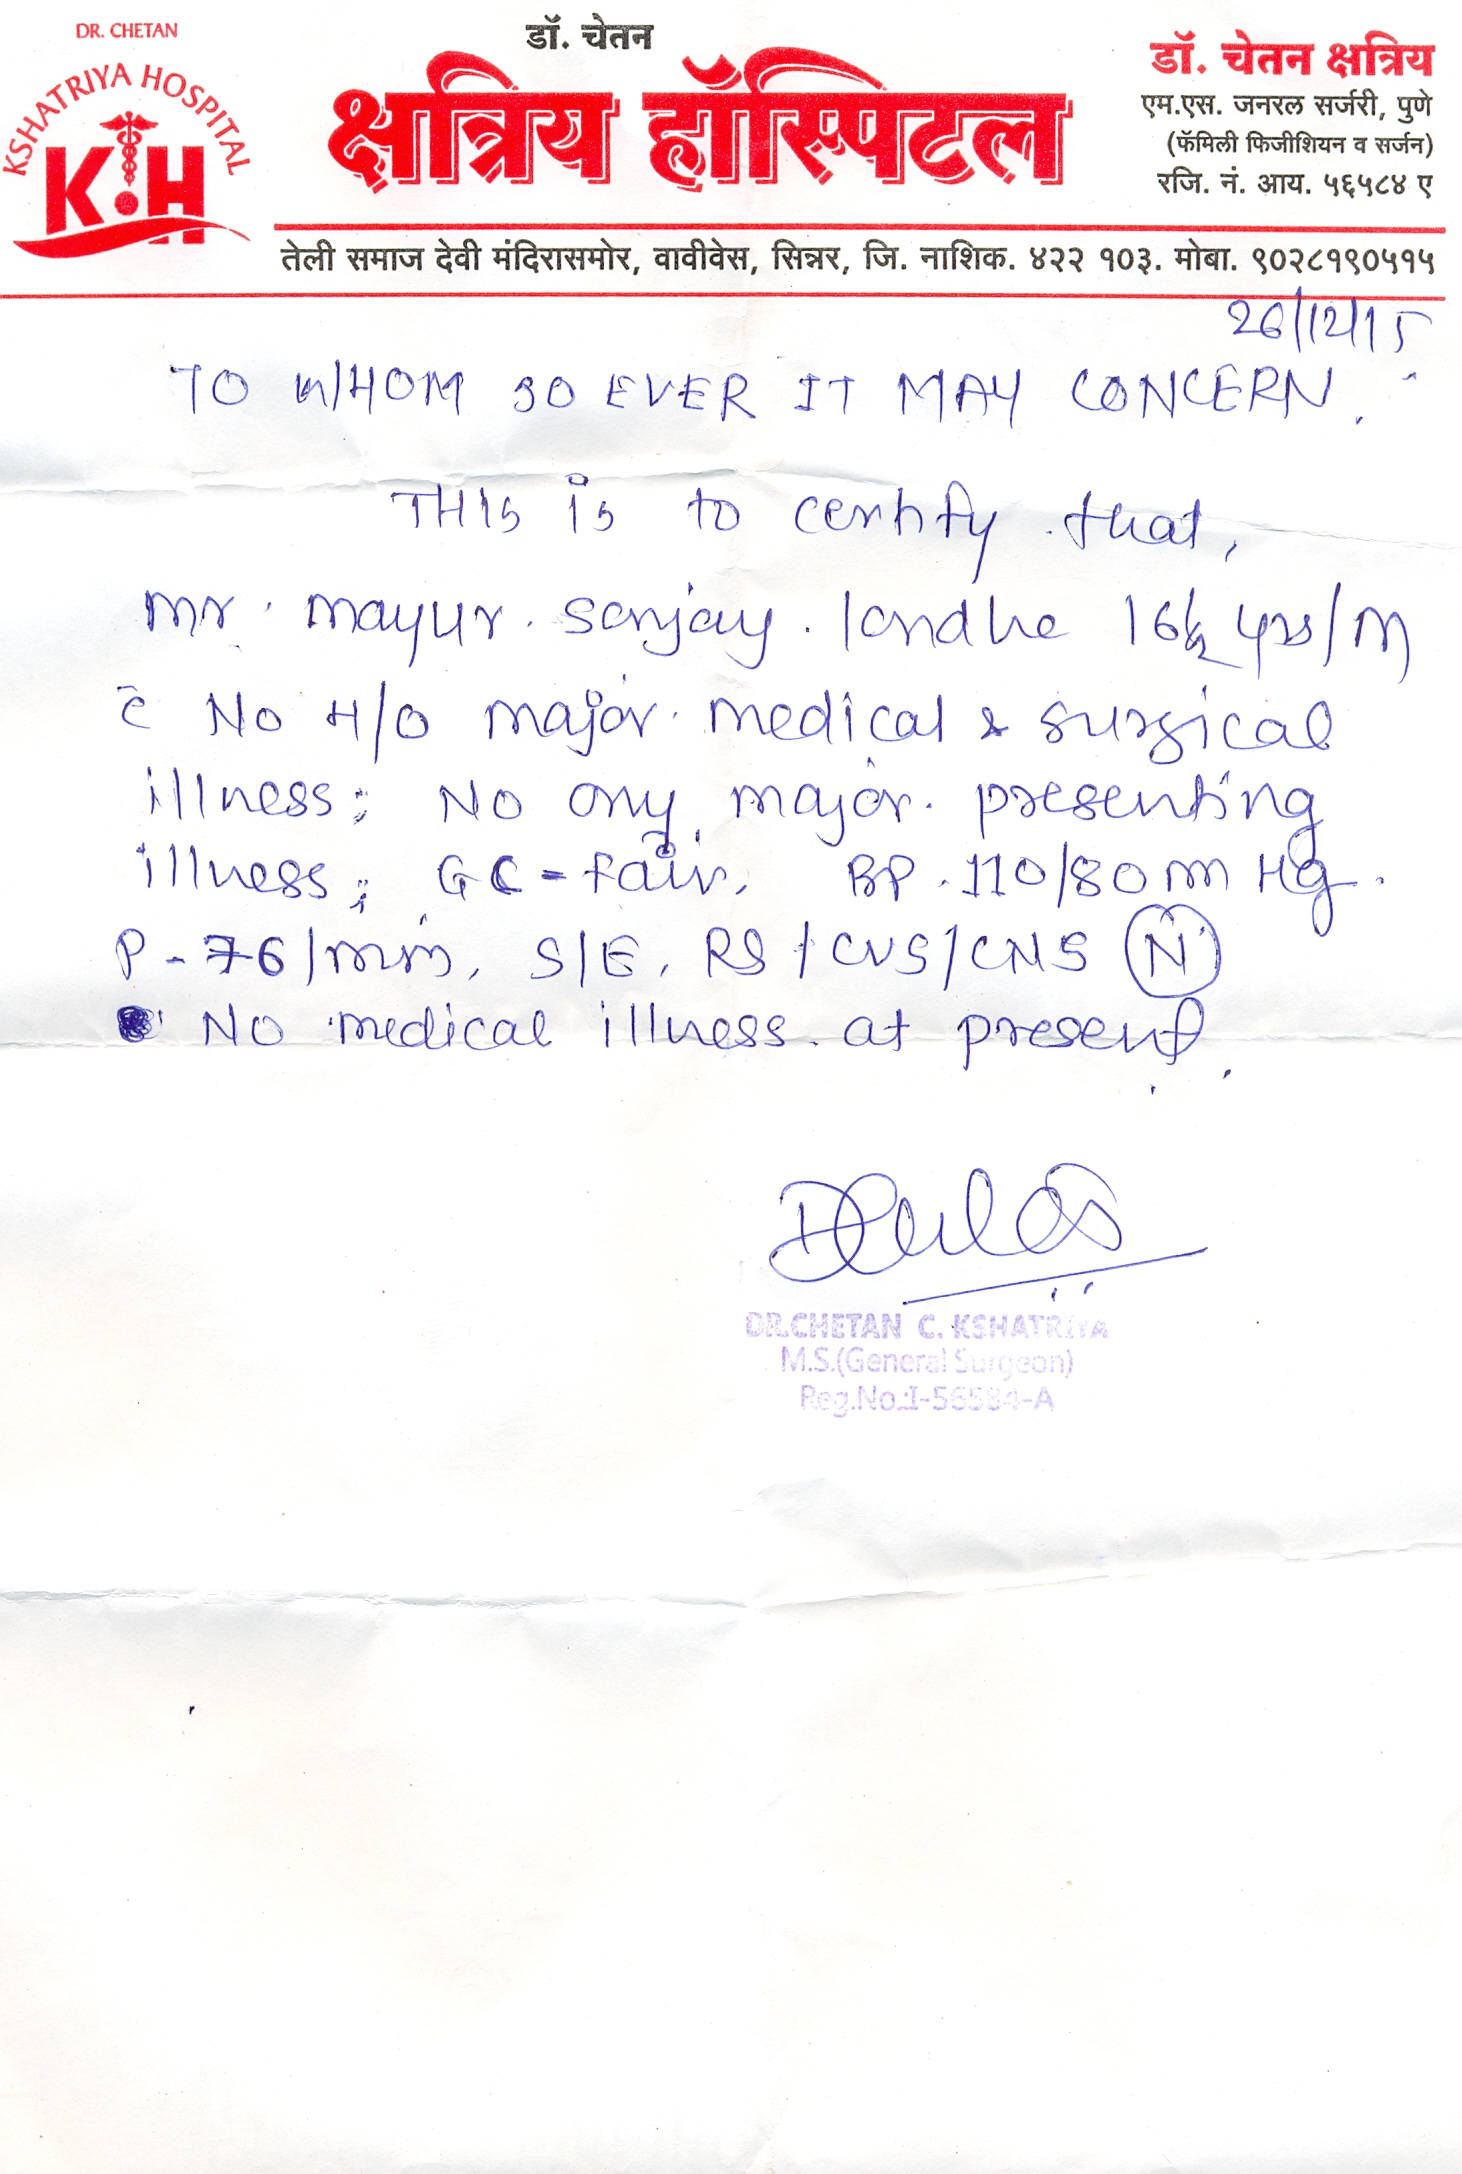 DR. CHETAN
KSHATRIYA HOSPITAL
KH
डॉ. चेतन
क्षत्रिय हॉस्पिटल
डॉ. चेतन क्षत्रिय
एम.एस. जनरल सर्जरी, पुणे
(फॅमिली फिजीशियन व सर्जन)
रजि. नं. आय. ५६५८४ ए
तेली समाज देवी मंदिरासमोर, वावीवेस, सिन्नर, जि. नाशिक. ४२२ १०३. मोबा. ९०२८१९०५१५
26/12/15
TO WHOM SO EVER IT MAY CONCERN.
THIS is to certify that,
mr. mayur. sanjay. londhe 16½ yrs/M
c̄ No H/O major. medical & surgical
illness; No any major. presenting
illness; GC - fair. BP. 110/80 mm Hg.
P - 76/min, S/E, RS/CVS/CNS N
No medical illness. at present.
DR.CHETAN C. KSHATRIYA
M.S.(General Surgeon)
Reg.No.:I-56584-A